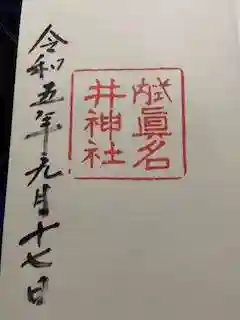 式内眞名
井神社
令和五年元月十七日